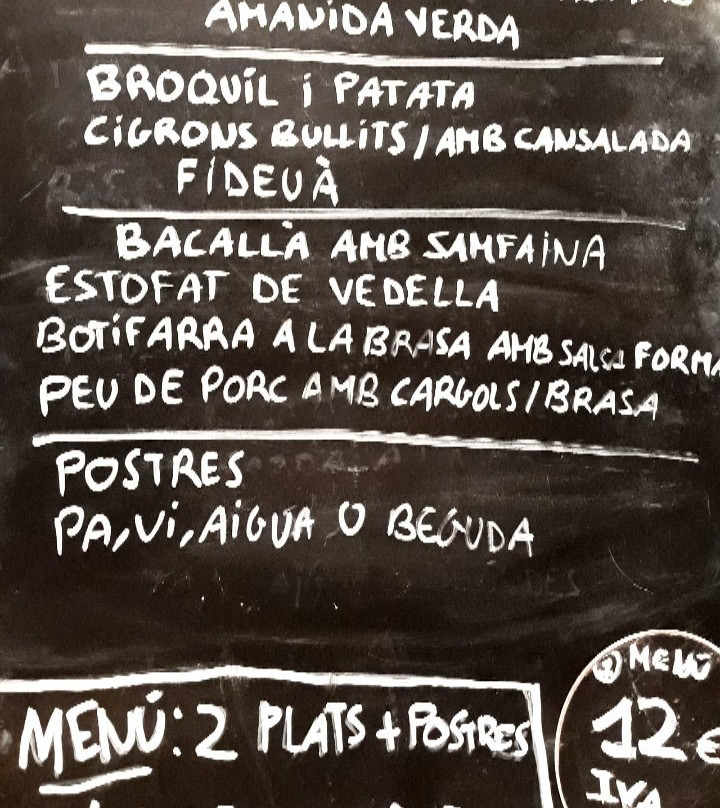 AMANIDA VERDA
BROQUÍL i PATATA
CIGRONS BULLITS/AMB CANSALADA
FIDEUÀ
BACALLÀ AMB SAMFAINA
ESTOFAT DE VEDELLA
BOTIFARRA A LA BRASA AMB SALSA FORMA
PEU DE PORC AMB CARGOLS/BRASA
POSTRES
PA, Vi, AIGUA O BEGUDA
MENÚ
12€
IVA
MENÚ: 2 PLATS + POSTRES